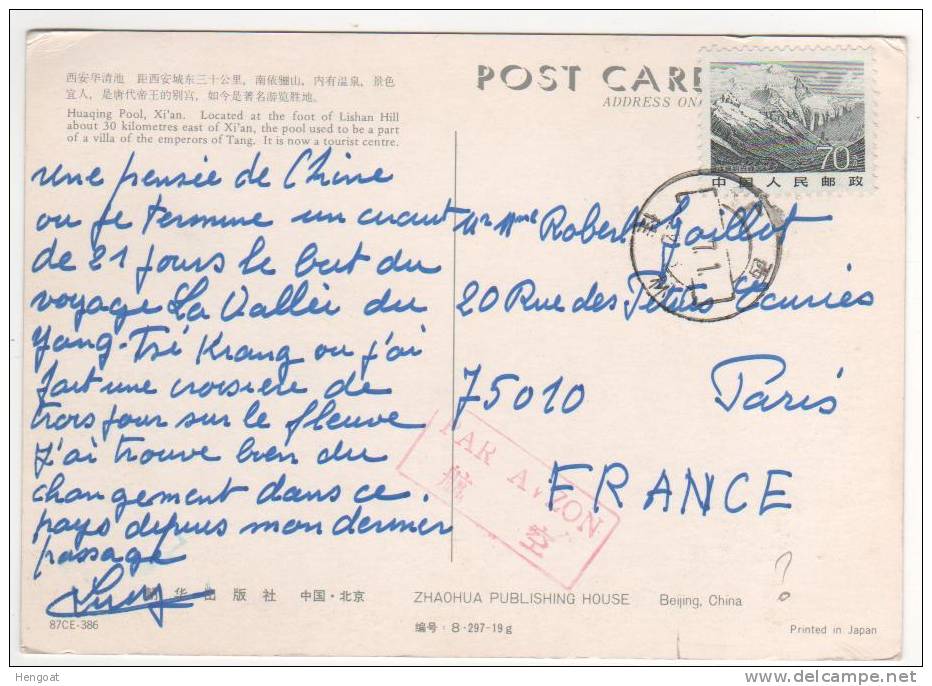 西安华清池　距西安城东三十公里，南依骊山，内有温泉，景色
宜人，是唐代帝王的别宫，如今是著名游览胜地。
Huaqing Pool, Xi'an. Located at the foot of Lishan Hill
about 30 kilometres east of Xi'an, the pool used to be a part
of a villa of the emperors of Tang. It is now a tourist centre.
une pensée de Chine
ou je termine un circuit
de 21 jours le but du
voyage La Vallée du
Yang-Tsé Kiang ou j'ai
fait une croisière de
trois jour sur le fleuve
j'ai trouve bien du
changement dans ce
pays depuis mon dernier
passage
POST CARD
ADDRESS ON
70
中国人民邮政
Mr Mme Robert Gaillot
20 Rue des Petites Ecuries
75010 Paris
FRANCE
PAR AVION
航空
?
朝华出版社 中国·北京
ZHAOHUA PUBLISHING HOUSE Beijing, China
87CE-386
编号：8-297-19g
Printed in Japan
Hengoat
www.delcampe.net